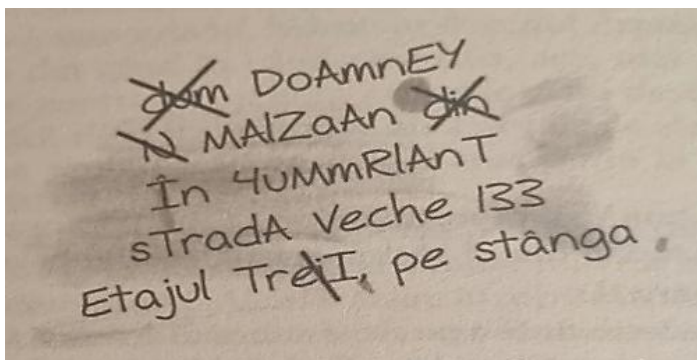 dom DoAmnEY
N MAlZaAn din
În 4uMmRlAnT
sTradA Veche 133
Etajul TreiI, pe stânga.